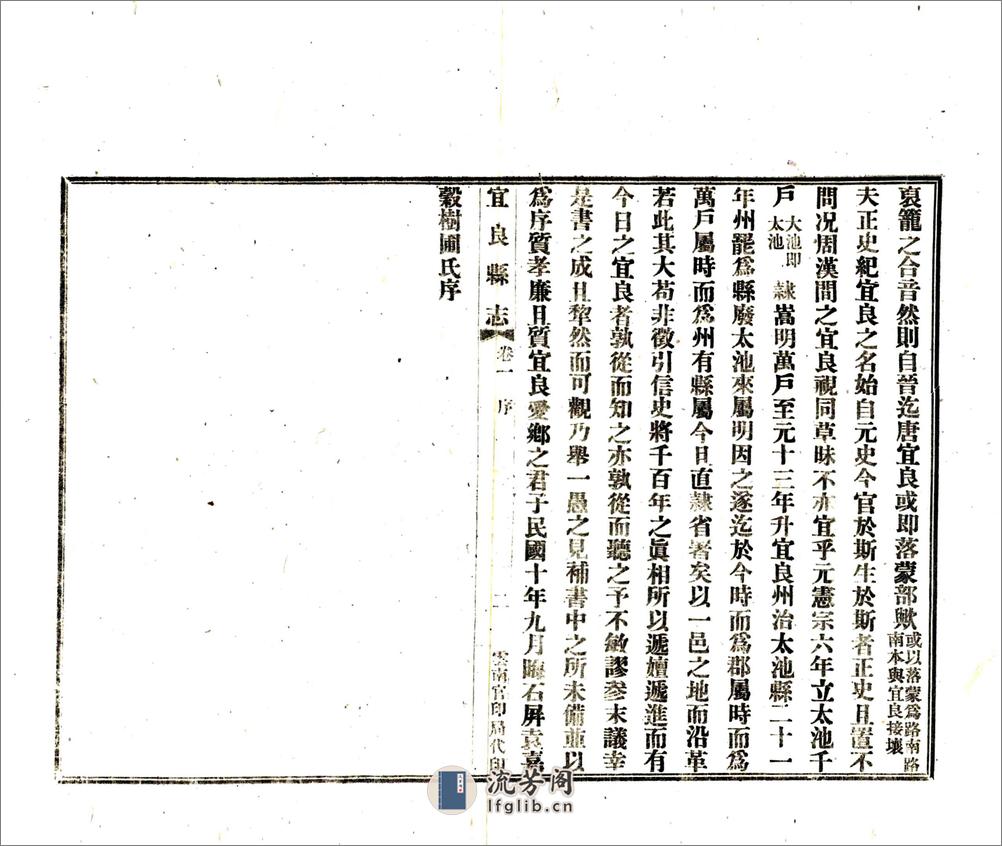 裒籠之合音然則自晉迄唐宜良或即落蒙部歟或以落蒙爲路南路南本與宜良接壤
夫正史紀宜良之名始自元史今官於斯生於斯者正史且置不
問况周漢間之宜良視同草昧不亦宜乎元憲宗六年立太池千
戶大池即太池隸嵩明萬戶至元十三年升宜良州治太池縣二十一
年州罷爲縣廢太池來屬明因之遂迄於今時而爲郡屬時而爲
萬戶屬時而爲州有縣屬今且直隸省署矣以一邑之地而沿革
若此其大苟非徵引信史將千百年之眞相所以遞嬗遞進而有
今日之宜良者孰從而知之亦孰從而聽之予不敏謬參末議幸
是書之成且犂然而可觀乃舉一愚之見補書中之所未備並以
爲序質孝廉且質宜良愛鄉之君子民國十年九月晦石屏袁嘉
宜良縣志 卷一 序 二 雲南官印局代印
穀樹圃氏序
流芳阁
lfglib.cn